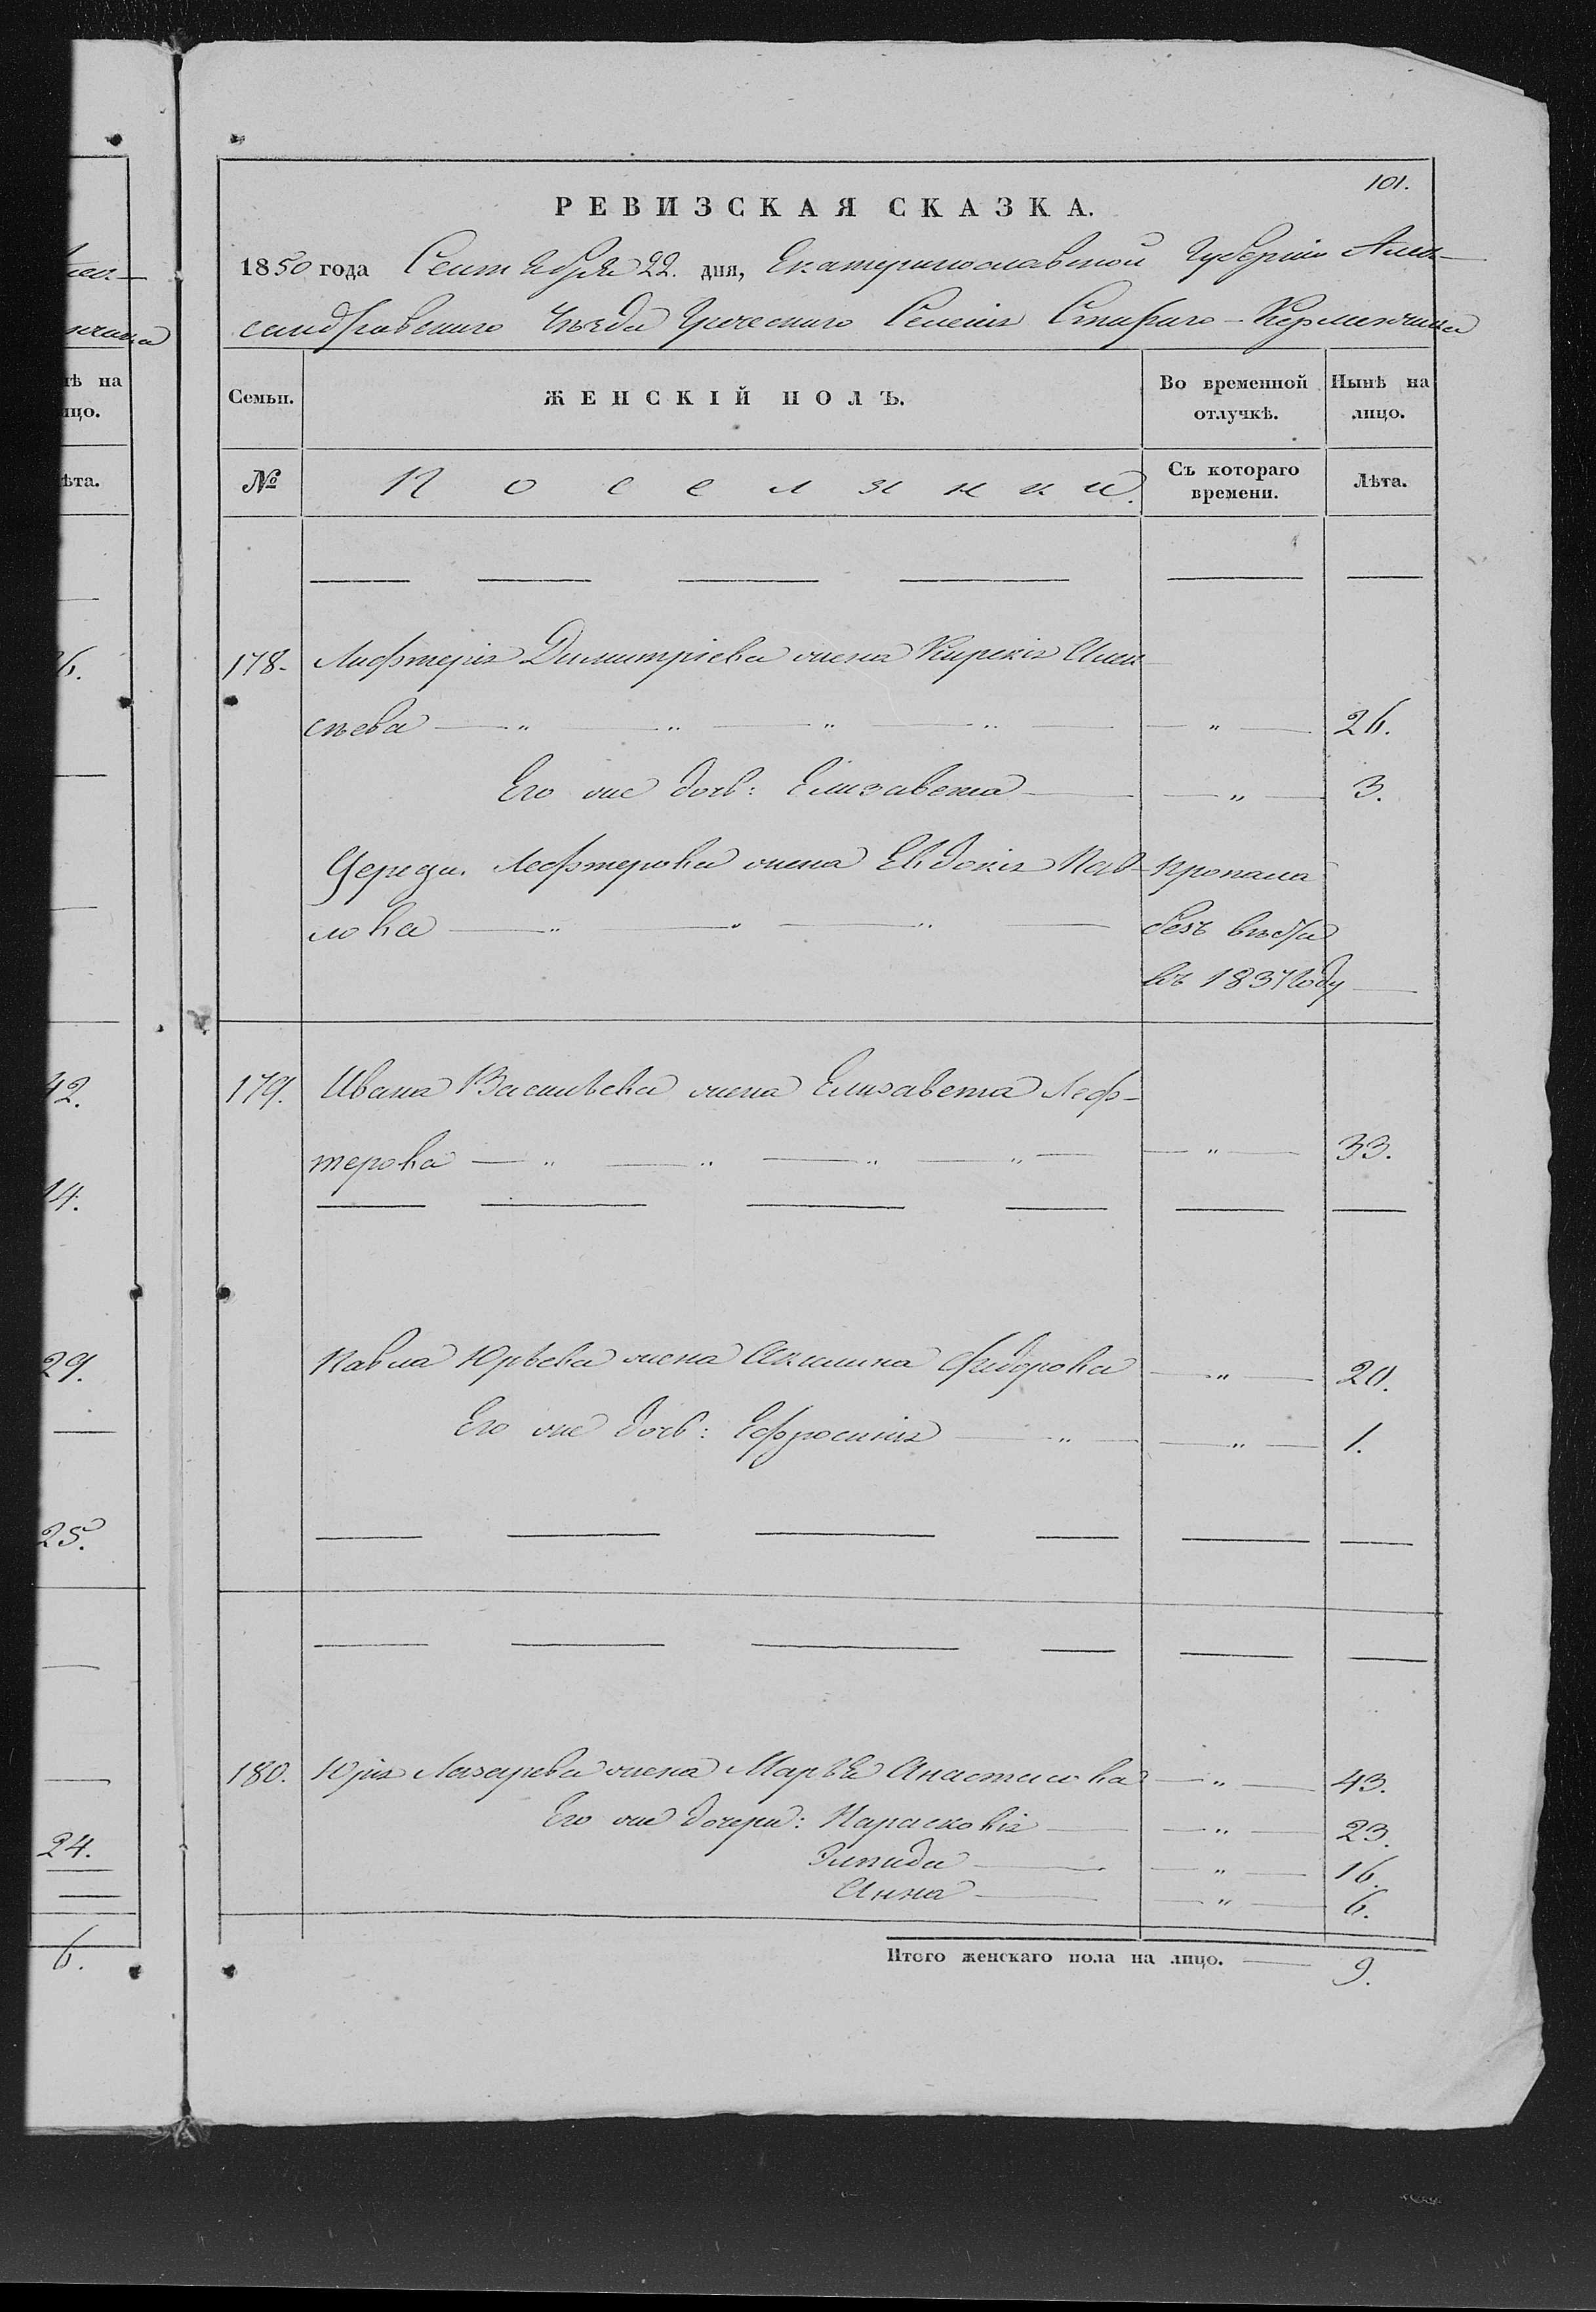 101.
РЕВИЗСКАЯ СКАЗКА.
1850 года Сентября 22. дня, Екатеринославской Губерніи Алек-
сандровскаго Уѣзда Греческаго Селенія Стараго-Керменчика
Семьи. ЖЕНСКІЙ ПОЛЪ. Во временной отлучкѣ. Нынѣ на лицо.
№ Поселянки. Съ котораго времени. Лѣта.
178. Лифтерія Димитріева жена Кирекія Алек-
сѣева — „ — „ — „ — „ — — „ — 26.
Его же дочь: Елизавета — — „ — 3.
Лефтерова жена Евдокія Пав- пропала
лова — „ — „ — „ — безъ вѣсти
въ 1837 году —
179. Ивана Васильева жена Елизавета Леф-
терова — „ — „ — „ — „ — — „ — 33.
Павла Юрьева жена Акилина Фидорова — „ — 20.
Его же дочь: Ефросинія — „ — — „ — 1.
180. Юрія Лазарева жена Марья Анастасова — „ — 43.
Его же дочери: Парасковія — — „ — 23.
Элпида — — „ — 16.
Анна — — „ — 6.
Итого женскаго пола на лицо. — 9.
нѣ на
лицо.
лѣта.
42.
14.
29.
25.
24.
6.